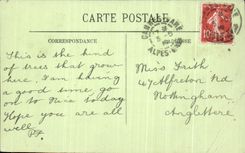 CARTE POSTALE
CORRESPONDANCE
This is the kind
of trees that grow
here. I am having
a good time, go
on to Nice today
Hope you are all
well
Miss Frith
47 Alfreton Rd
Nottingham
Angleterre
CANNES
ALPES
10